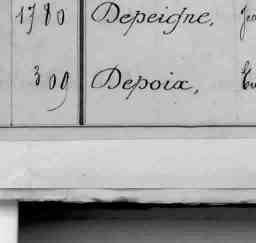 1780 Depeigne,
309 Depoix,